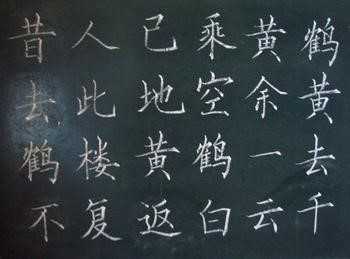 昔人已乘黄鹤
去此地空余黄
鹤楼黄鹤一去
不复返白云千